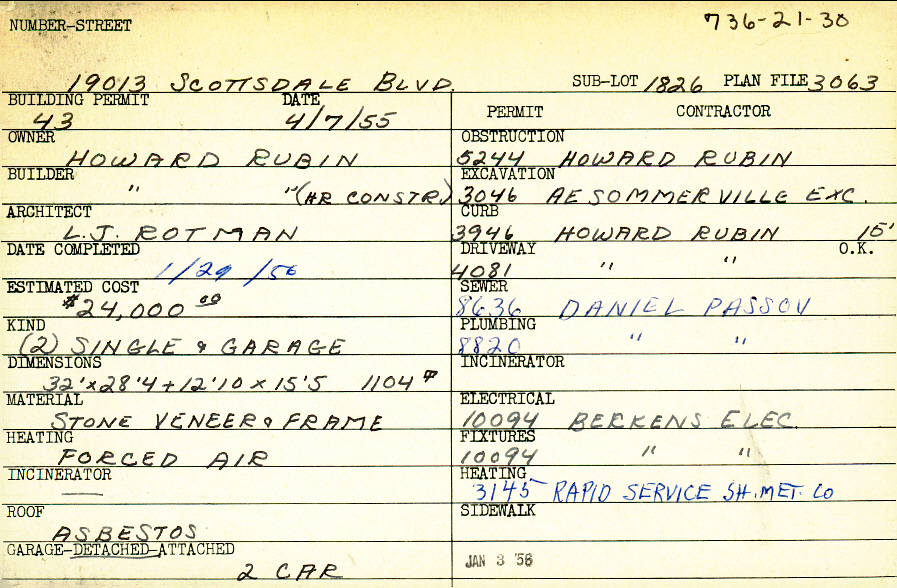 NUMBER-STREET
736-21-30
19013 SCOTTSDALE BLVD. SUB-LOT 1826 PLAN FILE 3063
BUILDING PERMIT DATE
43 4/7/55
OWNER
HOWARD RUBIN
BUILDER
" " (HR CONSTR)
ARCHITECT
L.J. ROTMAN
DATE COMPLETED
1/29/56
ESTIMATED COST
$24,000 00
KIND
(2) SINGLE & GARAGE
DIMENSIONS
32'x28'4+12'10x15'5 1104
MATERIAL
STONE VENEER & FRAME
HEATING
FORCED AIR
INCINERATOR
—
ROOF
ASBESTOS
GARAGE-DETACHED-ATTACHED
2 CAR
PERMIT CONTRACTOR
OBSTRUCTION
5244 HOWARD RUBIN
EXCAVATION
3046 AE SOMMERVILLE EXC.
CURB
3946 HOWARD RUBIN 15'
DRIVEWAY O.K.
4081 " "
SEWER
8636 DANIEL PASSOV
PLUMBING
8820 " "
INCINERATOR
ELECTRICAL
10094 BERKENS ELEC.
FIXTURES
10094 " "
HEATING
3145 RAPID SERVICE SH. MET. CO
SIDEWALK
JAN 3 '56